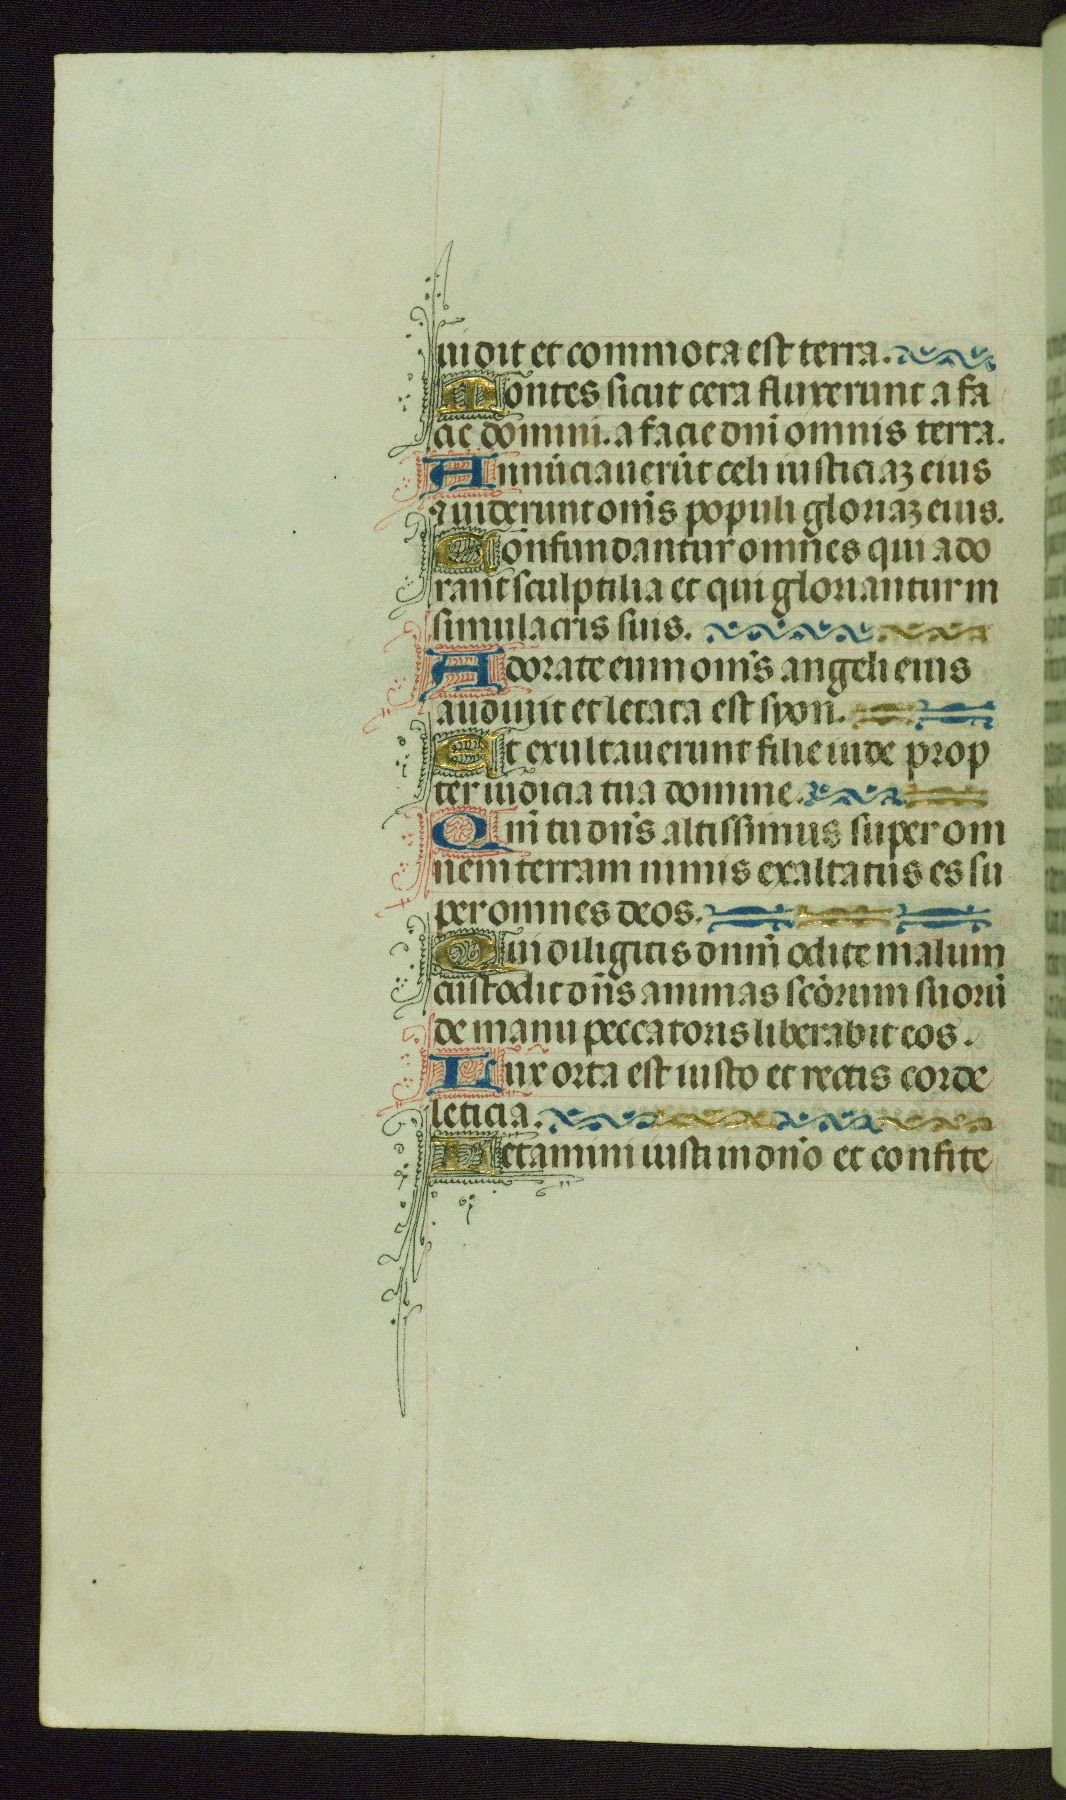 uidit et commota est terra.
Montes sicut cera fluxerunt a fa
cie domini. a facie dnī omnis terra.
Annūciauerūt celi iusticiaꝫ eius
⁊ uiderunt om̄s populi gloriaꝫ eius.
Confundantur omnes qui ado
rant sculptilia et qui gloriantur in
simulacris suis.
Adorate eum om̄s angeli eius
audiuit et letata est syon.
Et exultauerunt filie iude prop
ter iudicia tua domine.
Qm̄ tu dn̄s altissimus super om
nem terram nimis exaltatus es su
per omnes deos.
Qui diligitis dnm̄ odite malum
custodit dn̄s animas sc̄orum suorū
de manu peccatoris liberabit eos.
Lux orta est iusto et rectis corde
leticia.
Letamini iusti in dn̄o et confite